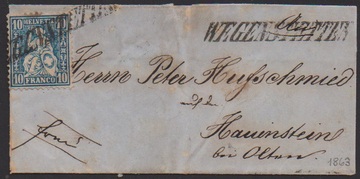 10 10
WEGENSTETTEN
10 FRANCO 10
Herrn Peter Hufschmied
auf d.
Hauenstein
bei Olten.
franco
1863